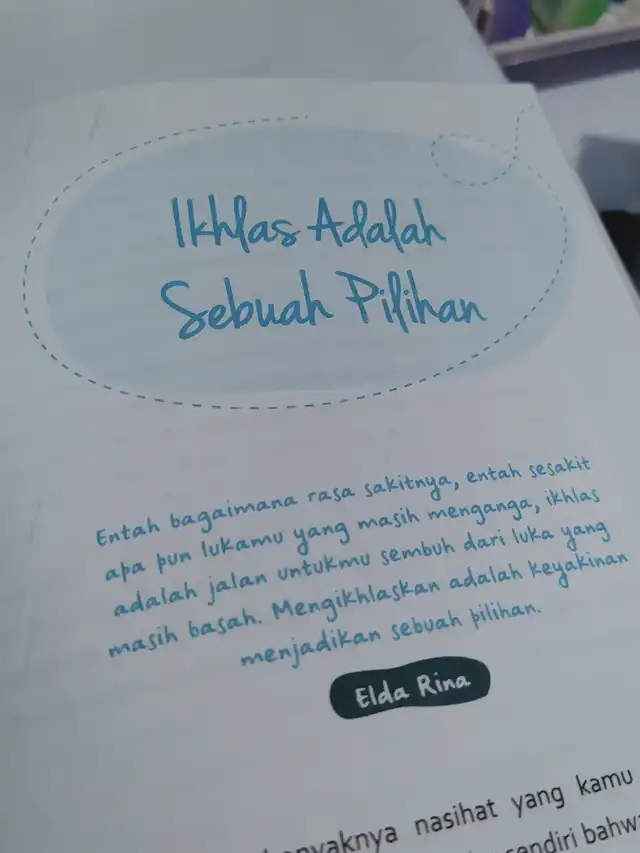 Ikhlas Adalah
Sebuah Pilihan
Entah bagaimana rasa sakitnya, entah sesakit
apa pun lukamu yang masih menganga, ikhlas
adalah jalan untukmu sembuh dari luka yang
masih basah. Mengikhlaskan adalah keyakinan
menjadikan sebuah pilihan.
Elda Rina
nasihat yang kamu
sendiri